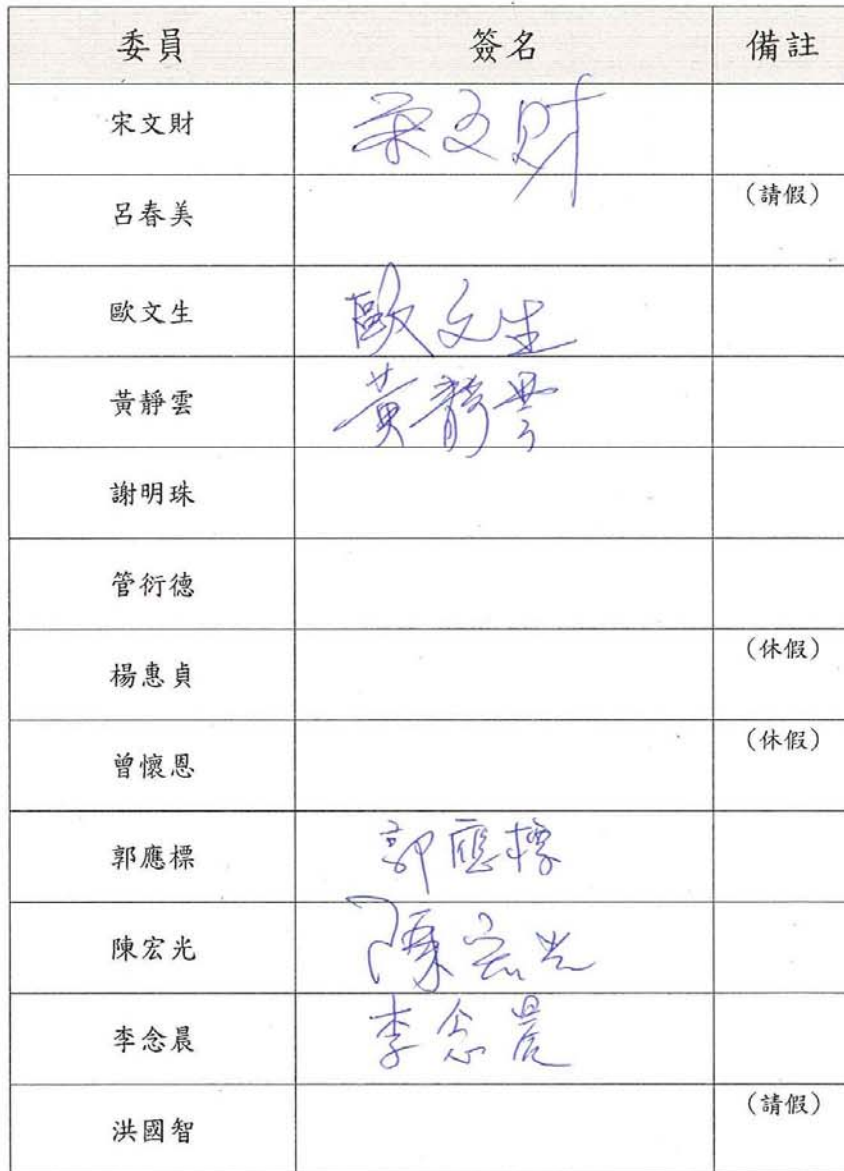 委員 簽名 備註
宋文財 宋文財
呂春美 (請假)
歐文生 歐文生
黃靜雲 黃靜雲
謝明珠
管衍德
楊惠貞 (休假)
曾懷恩 (休假)
郭應標 郭應標
陳宏光 陳宏光
李念晨 李念晨
洪國智 (請假)